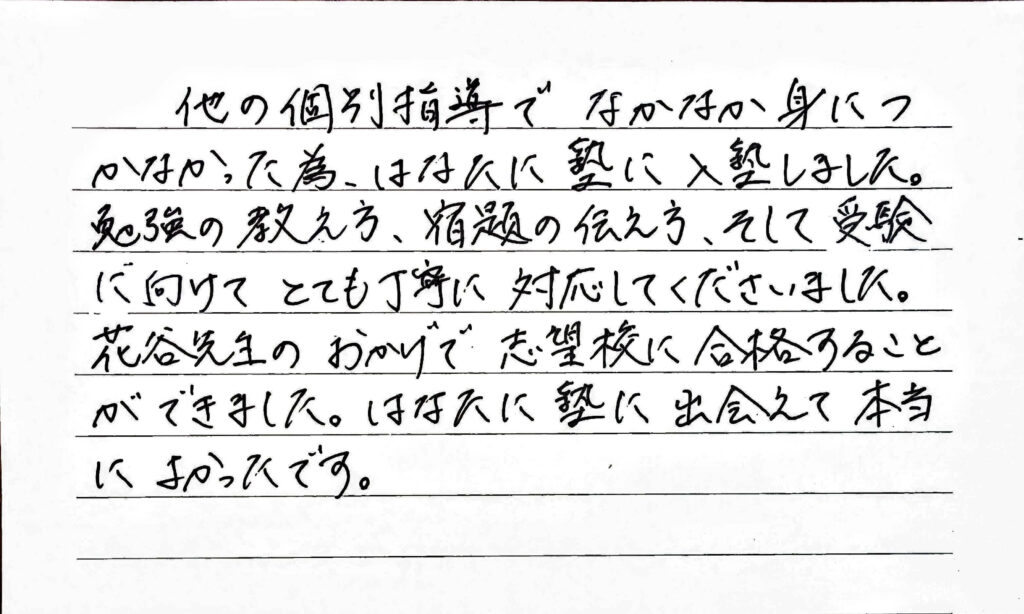 他の個別指導で なかなか身につ
かなかった為、はなたに塾に入塾しました。
勉強の教え方、宿題の伝え方、そして受験
に向けてとても丁寧に対応してくださいました。
花谷先生のおかげで志望校に合格すること
ができました。はなたに塾に出会えて本当
によかったです。